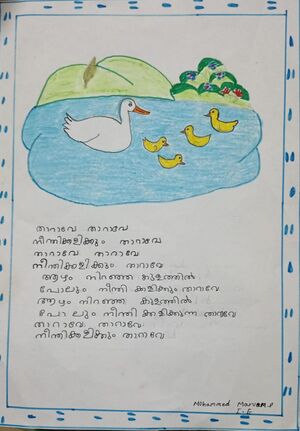 താറാവേ താറാവേ
നീന്തിക്കളിക്കും താറാവേ
താറാവേ താറാവേ
നീന്തിക്കളിക്കും താറാവേ
ആഴം നിറഞ്ഞ കുളത്തിൽ
പോലും നീന്തി കളിക്കും താറാവേ
ആഴം നിറഞ്ഞ കുളത്തിൽ
പോലും നീന്തി കളിക്കുന്ന താറാവേ
താറാവേ താറാവേ
നീന്തിക്കളിക്കും താറാവേ
Mohammed Marwan.P
I.E